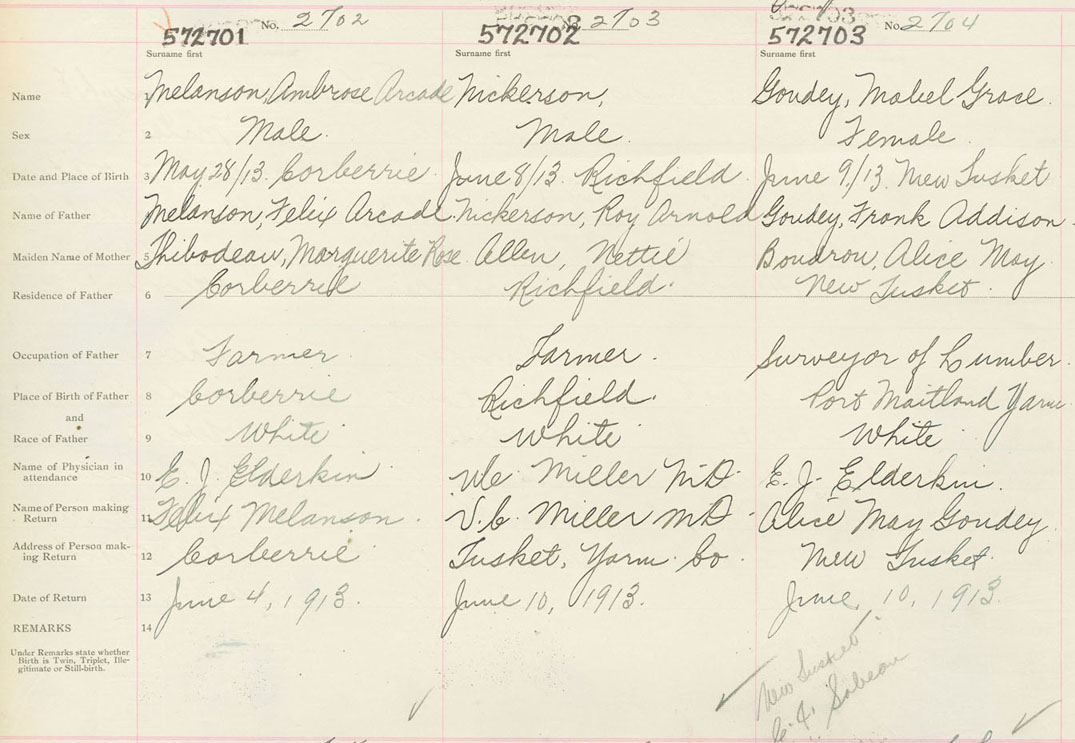 No. 2702 No. 2703 No. 2704
572701 572702 572703
Surname first Surname first Surname first
Name 1 Melanson, Ambrose Arcade Nickerson, Goudey, Mabel Grace.
Sex 2 Male. Male. Female.
Date and Place of Birth 3 May 28/13. Corberrie. June 8/13. Richfield. June 9/13. New Tusket
Name of Father 4 Melanson, Felix Arcade. Nickerson, Roy Arnold Goudey, Frank Addison.
Maiden Name of Mother 5 Thibodeau, Marguerite Rose. Allen, Nettie Boudrou, Alice May.
Residence of Father 6 Corberrie Richfield. New Tusket.
Occupation of Father 7 Farmer. Farmer. Surveyor of Lumber.
Place of Birth of Father 8 Corberrie Richfield. Port Maitland Yarm.
and
Race of Father 9 White. White. White.
Name of Physician in
attendance 10 E. J. Elderkin. Miller M.D. E. J. Elderkin.
Name of Person making
Return 11 Felix Melanson. V.C. Miller M.D. Alice May Goudey.
Address of Person mak-
ing Return 12 Corberrie Tusket, Yarm. Co. New Tusket.
Date of Return 13 June 4, 1913. June 10, 1913. June, 10, 1913.
REMARKS 14
Under Remarks state whether
Birth is Twin, Triplet, Ille-
gitimate or Still-birth.
New Tusket.
Sabean